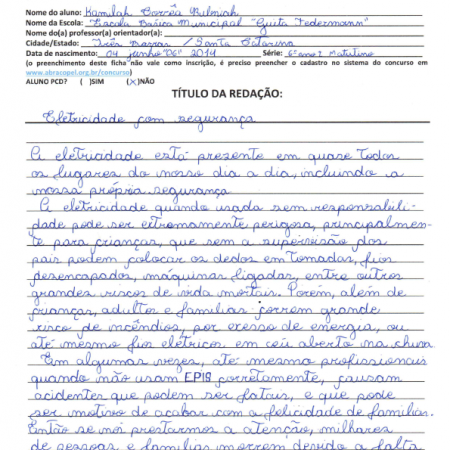 Nome do aluno: Kamilah Corrêa Bulmiah
Nome da Escola: Escola Básica Municipal "Guita Federmann"
Nome do(a) professor(a) orientador(a):
Cidade/Estado: Três Barras / Santa Catarina
Data de nascimento: 04 junho "06" 2014 Série: 6º ano 2 Matutino
(o preenchimento desta ficha não vale como inscrição, é preciso preencher o cadastro no sistema do concurso em
www.abracopel.org.br/concurso)
ALUNO PCD? ( )SIM (x)NÃO
TÍTULO DA REDAÇÃO:
Eletricidade com segurança
A eletricidade está presente em quase todos
os lugares do nosso dia a dia, incluindo a
nossa própria segurança
A eletricidade quando usada sem responsabili-
dade pode ser extremamente perigosa, principalmen-
te para crianças, que sem a supervisão dos
pais podem colocar os dedos em tomadas, fios
desencapados, máquinas ligadas, entre outros
grandes riscos de vida mortais. Porém, além de
crianças, adultos e famílias correm grande
risco de incêndios, por exesso de energia, ou
até mesmo fios elétricos em céu aberto na chuva
Em algumas vezes, até mesmo profissionais
quando não usam EPIS corretamente, causam
acidentes que podem ser fatais, e que pode
ser motivo de acabar com a felicidade de famílias.
Então se nós prestarmos a atenção, milhares
de pessoas e famílias morrem devido a falta